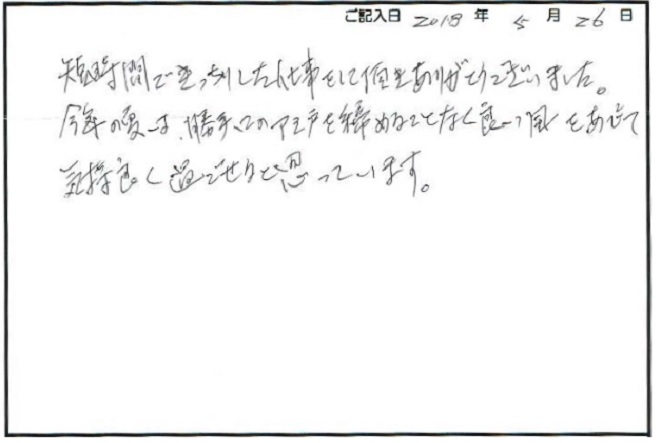 ご記入日 2018 年 5 月 26 日
短時間できっちりした仕事をして頂きありがとうございました。
今年の夏は、勝手口のアミ戸を締めることなく良い風をあびて
気持良く過ごせると思っています。